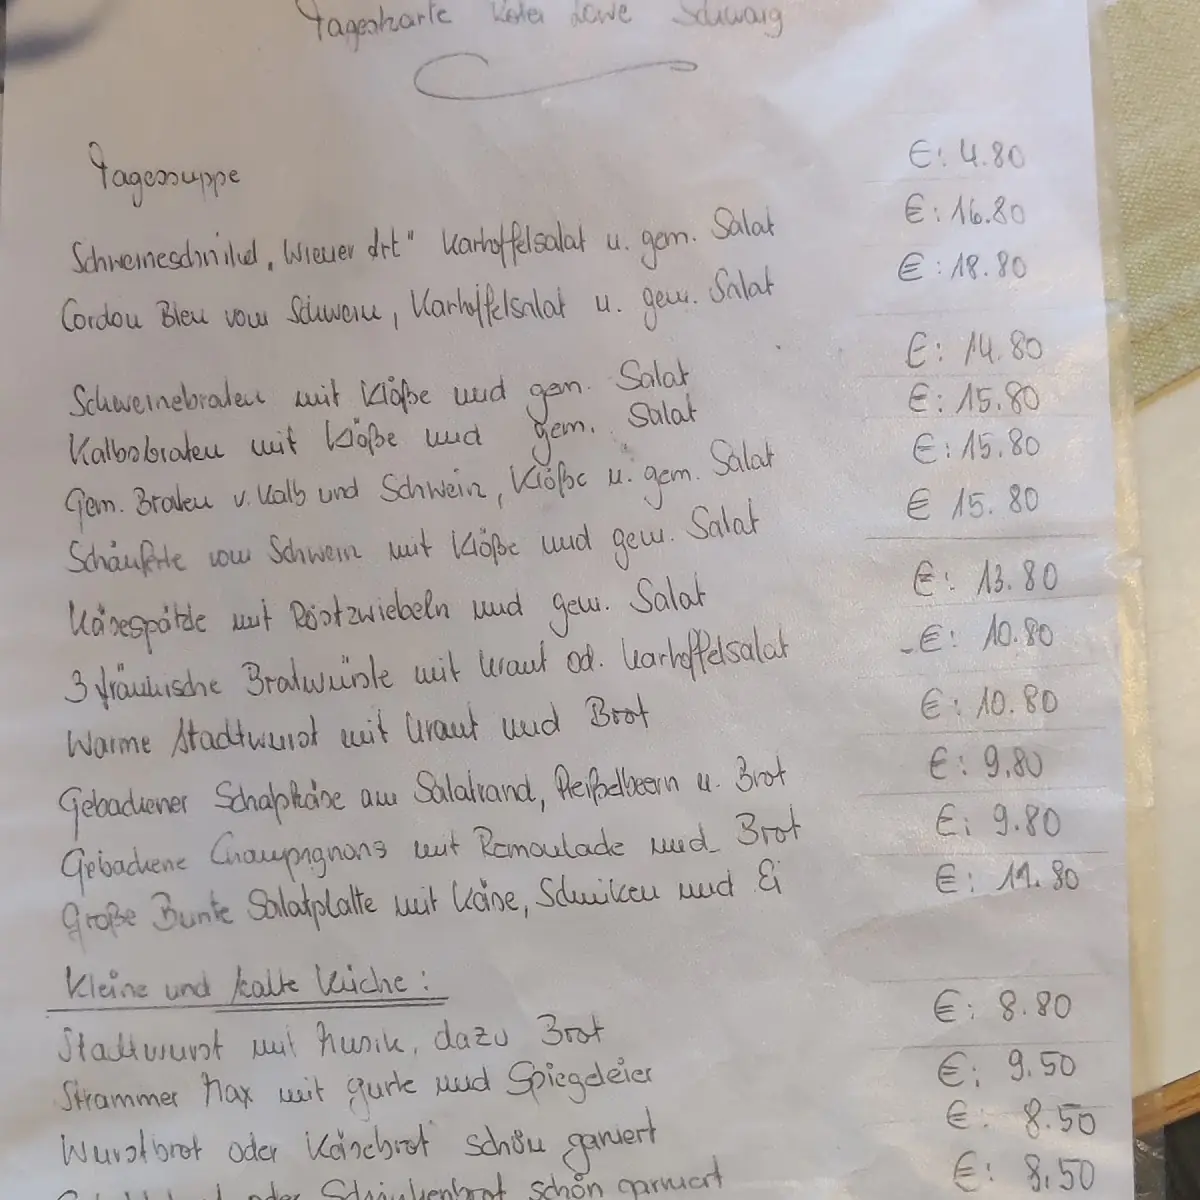 Tageskarte Roter Löwe Schwaig
Tagessuppe €: 4.80
Schweineschnitzel „Wiener Art" Kartoffelsalat u. gem. Salat €: 16.80
Cordon Bleu vom Schwein, Kartoffelsalat u. gem. Salat €: 18.80
Schweinebraten mit Klöße und gem. Salat €: 14.80
Kalbsbraten mit Klöße und gem. Salat €: 15.80
Gem. Braten v. Kalb und Schwein, Klöße u. gem. Salat €: 15.80
Schäuferle vom Schwein mit Klöße und gem. Salat € 15.80
Käsespätzle mit Röstzwiebeln und gem. Salat €: 13.80
3 fränkische Bratwürste mit Kraut od. Kartoffelsalat €: 10.80
Warme Stadtwurst mit Kraut und Brot €: 10.80
Gebackener Schafskäse am Salatrand, Preißelbeern u. Brot €: 9.80
Gebackene Champignons mit Remoulade und Brot €: 9.80
Große Bunte Salatplatte mit Käse, Schinken und Ei €: 11.80
Kleine und kalte Küche:
Stadtwurst mit Musik, dazu Brot €: 8.80
Strammer Max mit Gurke und Spiegeleier €: 9.50
Wurstbrot oder Käsebrot schön garniert €: 8.50
oder Schinkenbrot schön garniert €: 8.50